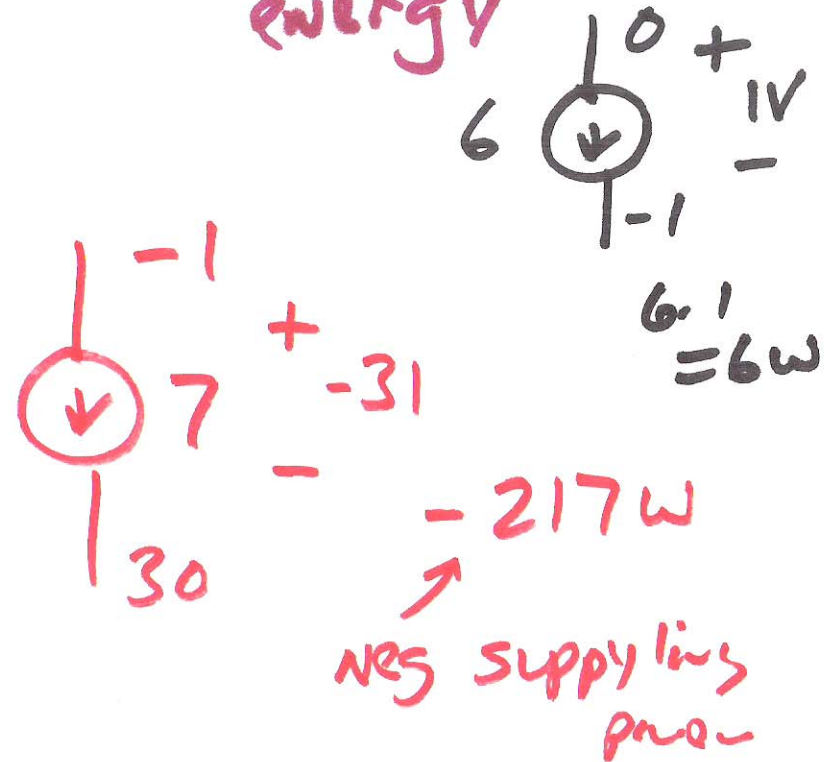 energy
0 +
1V
6
-
-1
6.1
=6W
-1
+
7 -31
-
30
-217W
Neg suppyling
power